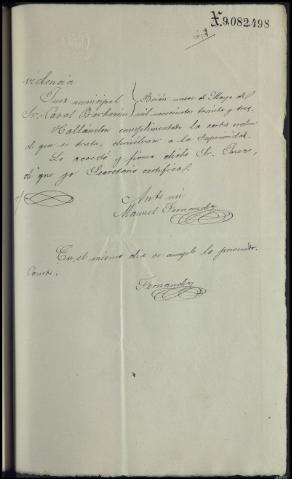 X.9.082.498
Juez municipal
Sr. Caval
Baión nueve de Mayo de
mil novecientos treinta y
Hallándose cumplimentada la carta orden
de que se trata, devuélvase a la Superioridad.
Lo acordó y firma dicho Sr. Juez,
de que yo Secretario certifico.
Ante mi
Manuel Fernandez
En el mismo día se cumple lo
Fernandez